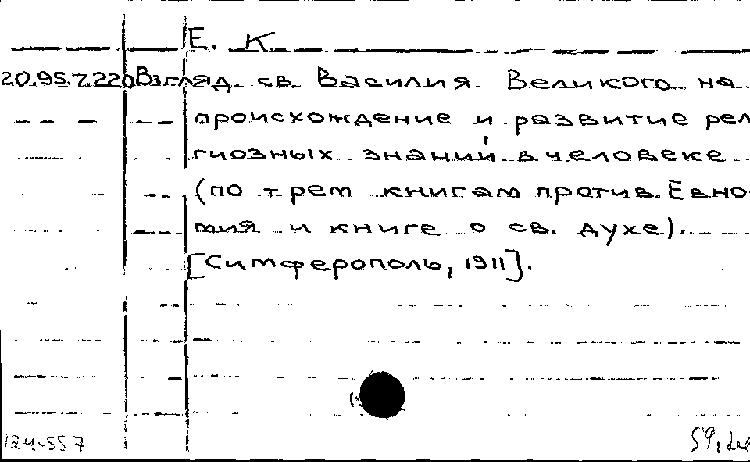 Е. К
20.95.7.220 Взгляд св. Василия Великого на
происхождение и развитие рели
гиозных знаний в человеке
(по трем книгам против Евно
мия и книге о св. духе).
[Симферополь, 1911].
124-557